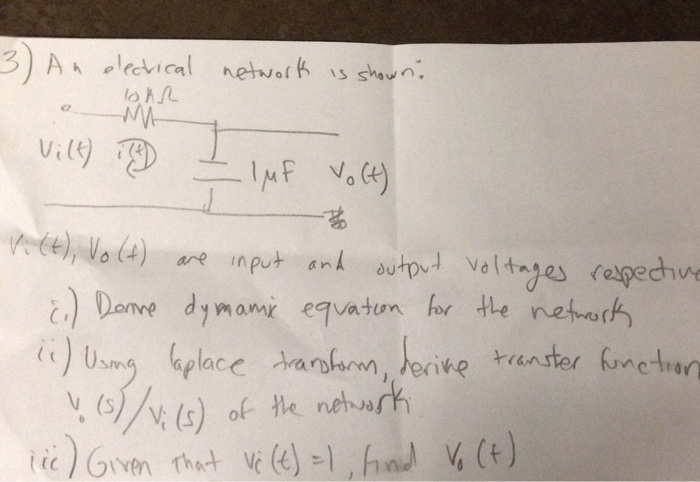 3) An electrical network is shown:
10kΩ
Vi(t) i(t) 1μF Vo(t)
Vi(t), Vo(t) are input and output voltages respective
i.) Derive dynamic equation for the network
ii) Using laplace transform, derive transfer function
Vo(s)/Vi(s) of the network
iii) Given that Vi(t) =1, find Vo(t)